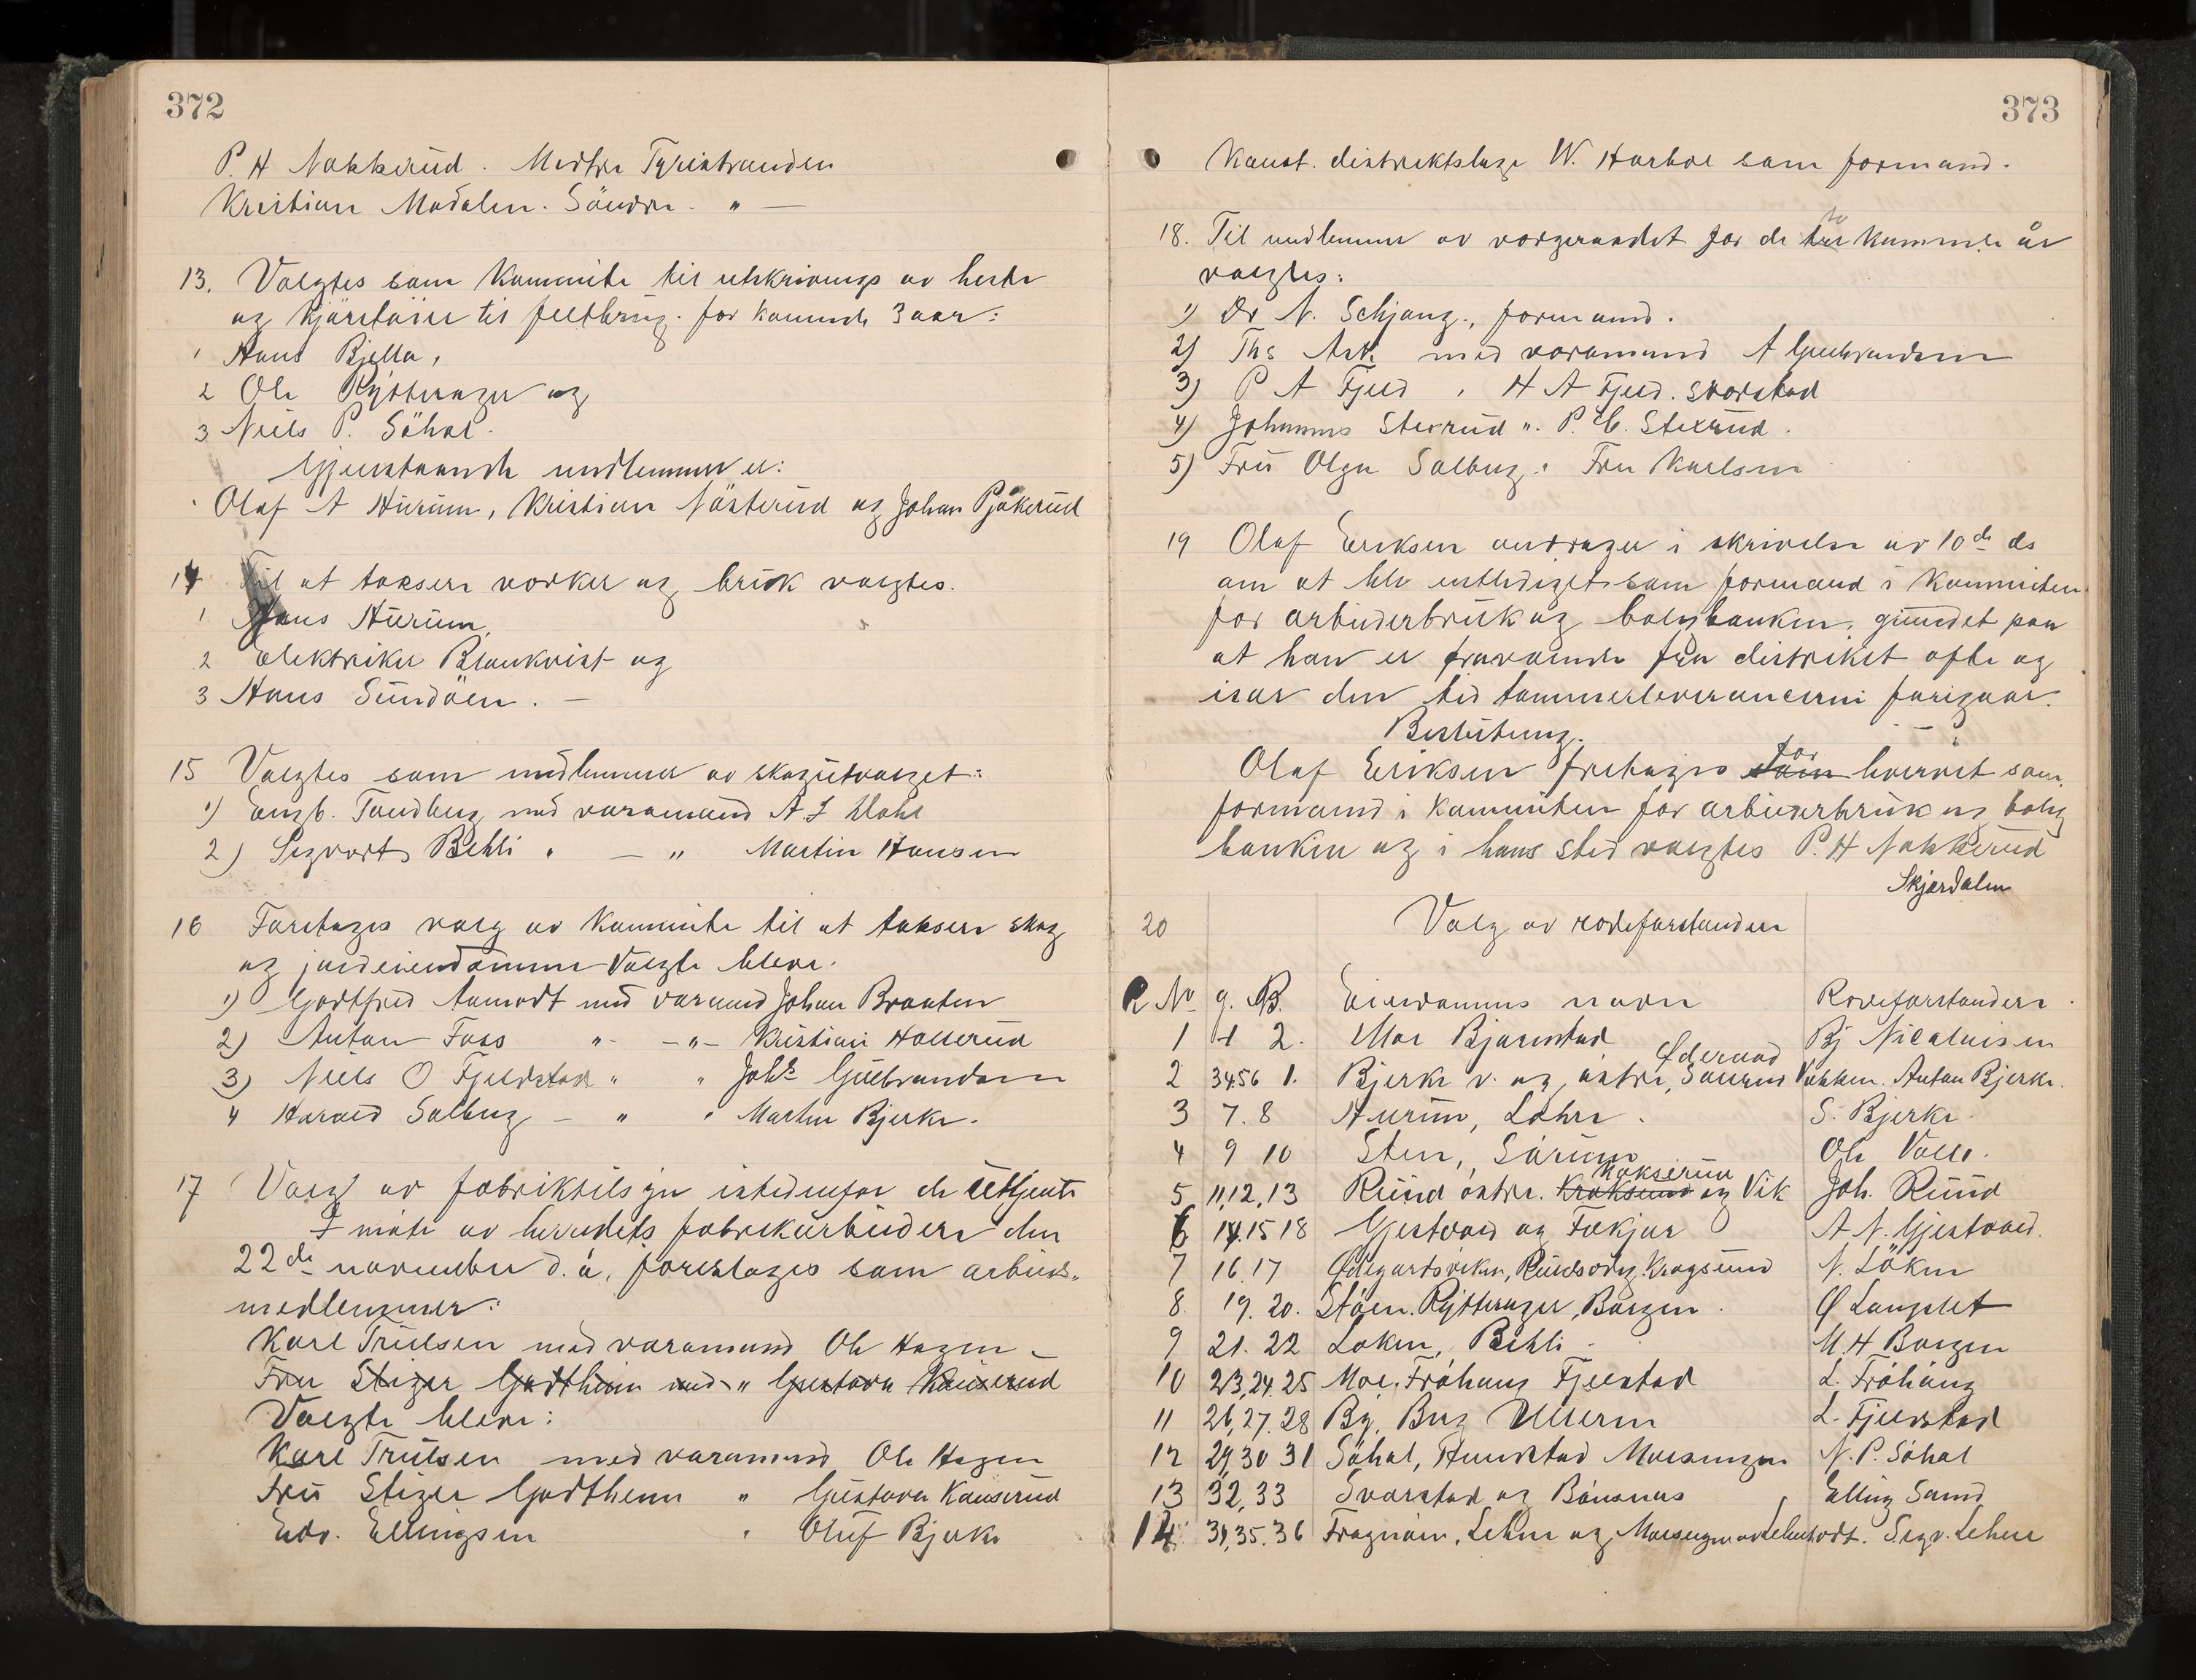 372
P. H Nakkerud. Midtre Tyristranden
Kristian Modalen. Söndre. " —
13. Valgtes som Kommite til utskrivnings av heste
og Kjöretöier til feltbrug. for kommende 3 aar:
1 Hans Bjella,
2 Ole Rytterager og
3 Niels P. Söhol.
Gjenstaaende medlemmer er:
Olaf A Hurum, Kristian Nästerud og Johan Pjåkerud
14 Til at taksere varker og bruk valgtes.
1 Hans Hurum,
2 Elektriker Blomkvist og
3 Hans Sundöen. —
15 Valgtes som medlemmer av skogutvalget:
1) Engb. Tandberg med varamand A. I Dahl
2) Segvart Behli " — " Martin Hansen
16 Foretages valg av Kommite til at taksere skog
og jordeiendomme Valgte bleve.
1) Godtfred Aamodt med varamd Johan Braaten
2) Anton Foss " — " — Kristian Hollerud
3) Niels O Fjeldstad " " Johs Gulbrandsen
4 Harald Solberg — " " Martin Bjerke.
17 Valg av fabriktilsyn istedenfor de uttjente
I möte av herredets fabrikarbeidere den
22de november d. å. foreslages som arbeids-
medlemmer:
Karl Trulsen med varamand Ole Hagen —
Fru Stiger Godtheim med " Gustava Kauserud
Valgte bleve:
Karl Trulsen med varamand Ole Hagen
Fru Stiger Godtheim " Gustava Kauserud
Edv. Ellingsen " Oluf Bjerke
373
Konst. distriktslæge W. Harboe som formand.
18. Til medlemmer av vergeraadet for de to Kommende år
valgtes:
1) Dr N. Schjong, formand.
2) Ths Ask med varamand A Gulbrandsen
3) P A Fjeld " H A Fjeld. Svarstad
4) Johannes Stexrud ". P. C. Stexrud.
5) Fru Olga Solberg. " Fru Karlsen
19 Olaf Eriksen andrager i skrivelse av 10de ds
om at bli entlediget som formand i Kommiteen
for arbeiderbruk og boligbanken, grundet paa
at han er fraværende fra distriket ofte og
især den tid tømmerleverancerne foregaar.
Beslutning.
Olaf Eriksen fritages som for hvervet som
formand i Kommiteen for arbeiderbruk og bolig
banken og i hans sted valgtes P. H Nakkerud
Skjærdalen
20 Valg av rodeforstandere
R No g. B. Eiendommens navn Rodeforstandere.
1 1 2. Moe Bjørnstad Bj Nicolaisen
Ødernad
2 3456 1. Bjerke v. og östre, Saurud Vakken. Anton Bjerke.
3 7. 8 Hurum, Lohre. S. Bjerke.
4 9 10 Sten, Sörum Ole Vollo.
Kokserud
5 11,12,13 Rund östre. Kroksund og Vik Joh. Rund
6 14.15 18 Gjestvold og Fekjær A. N. Gjestvold.
7 16.17 Ødegårdsviken, Rundsödeg. Krogsund N. Löken
8. 19. 20. Stöen. Rytterager, Borgen. Ø Langslet
9 21. 22 Loken, Behli. M. H Borgen
10 23,24.25 Moe. Fröhaug Fjelstad L. Fröhaug
11 26,27.28 By, Berg Ullern L. Fjeldstad
12 29,30 31 Söhol, Hundstad Moesengen N. P. Söhol
13 32,33 Svarstad og Bönsnes Elling Sand
14 34,35.36 Fragnäm, Lehne og Moesengen av Lehne hovt. Segv. Lehne